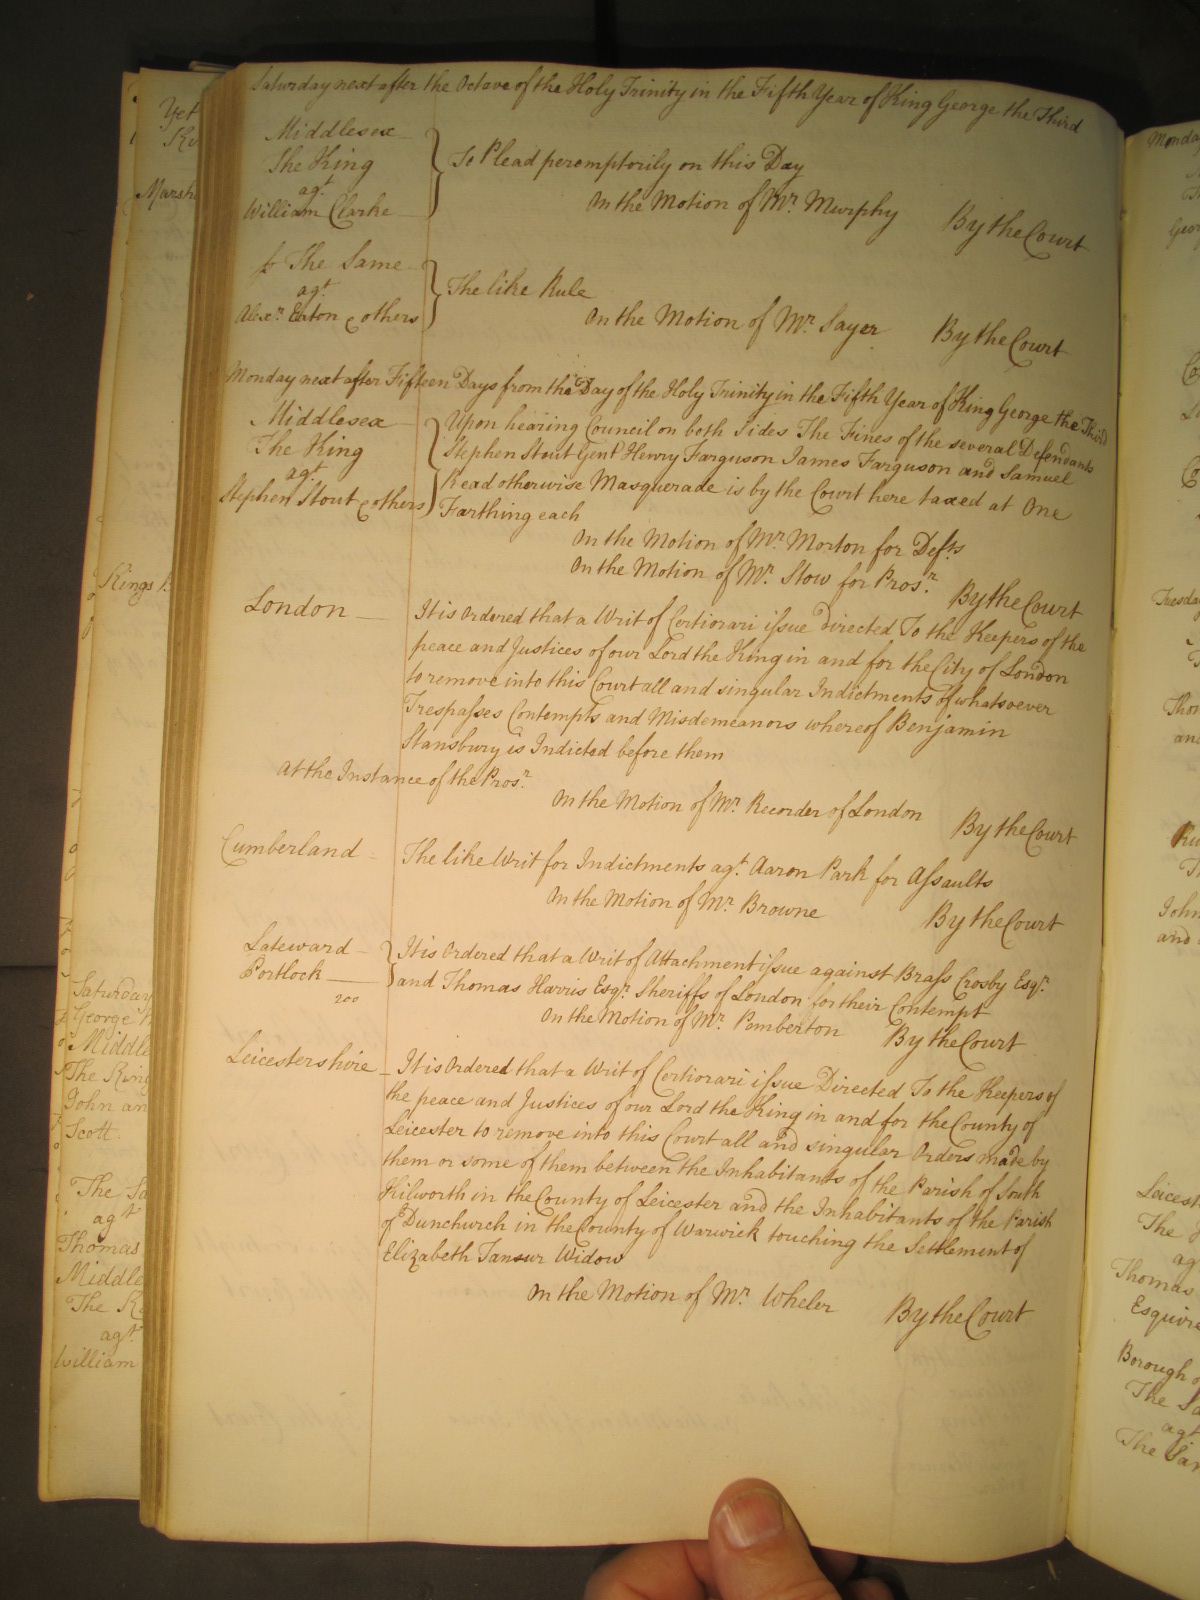 Saturday next after the Octave of the Holy Trinity in the Fifth Year of King George the Third
Middlesex
The King
agt
William Clarke
To Plead peremptorily on this Day
On the Motion of Mr. Murphy By the Court
The Same
agt
Alexr. Eaton & others
The like Rule
On the Motion of Mr. Sayer By the Court
Monday next after Fifteen Days from the Day of the Holy Trinity in the Fifth Year of King George the Third
Middlesex
The King
agt
Stephen Stout & others
Upon hearing Council on both Sides The Fines of the several Defendants
Stephen Stout Gent Henry Farguson James Farguson and Samuel
Read otherwise Masquerade is by the Court here taxed at One
Farthing each
On the Motion of Mr. Morton for Defts
On the Motion of Mr. Stow for Prosr. By the Court
London
It is Ordered that a Writ of Certiorari issue directed To the Keepers of the
peace and Justices of our Lord the King in and for the City of London
to remove into this Court all and singular Indictments of whatsoever
Trespasses Contempts and Misdemeanors whereof Benjamin
Stansbury is Indicted before them
At the Instance of the Prosr.
On the Motion of Mr. Recorder of London By the Court
Cumberland
The like Writ for Indictments agt. Aaron Park for Assaults
On the Motion of Mr. Browne By the Court
Lateward
Portlock
200
It is Ordered that a Writ of Attachment issue against Brass Crosby Esqr.
and Thomas Harris Esqr. Sheriffs of London for their Contempt
On the Motion of Mr. Pemberton By the Court
Leicestershire
It is Ordered that a Writ of Certiorari issue Directed To the Keepers of
the peace and Justices of our Lord the King in and for the County of
Leicester to remove into this Court all and singular Orders made by
them or some of them between the Inhabitants of the Parish of South
Kilworth in the County of Leicester and the Inhabitants of the Parish
of Dunchurch in the County of Warwick touching the Settlement of
Elizabeth Tansur Widow
On the Motion of Mr. Wheler By the Court
Yet
Marsh
Kings
Saturday
George
Middle
The King
John an
Scott
The Sa
agt
Thomas
Middle
The K
agt
William
Monday
Geor
Tuesda
Thom
and
John
and
Leicest
The
ag
Thomas
Esquire
Borough o
The Sa
agt
The Sam